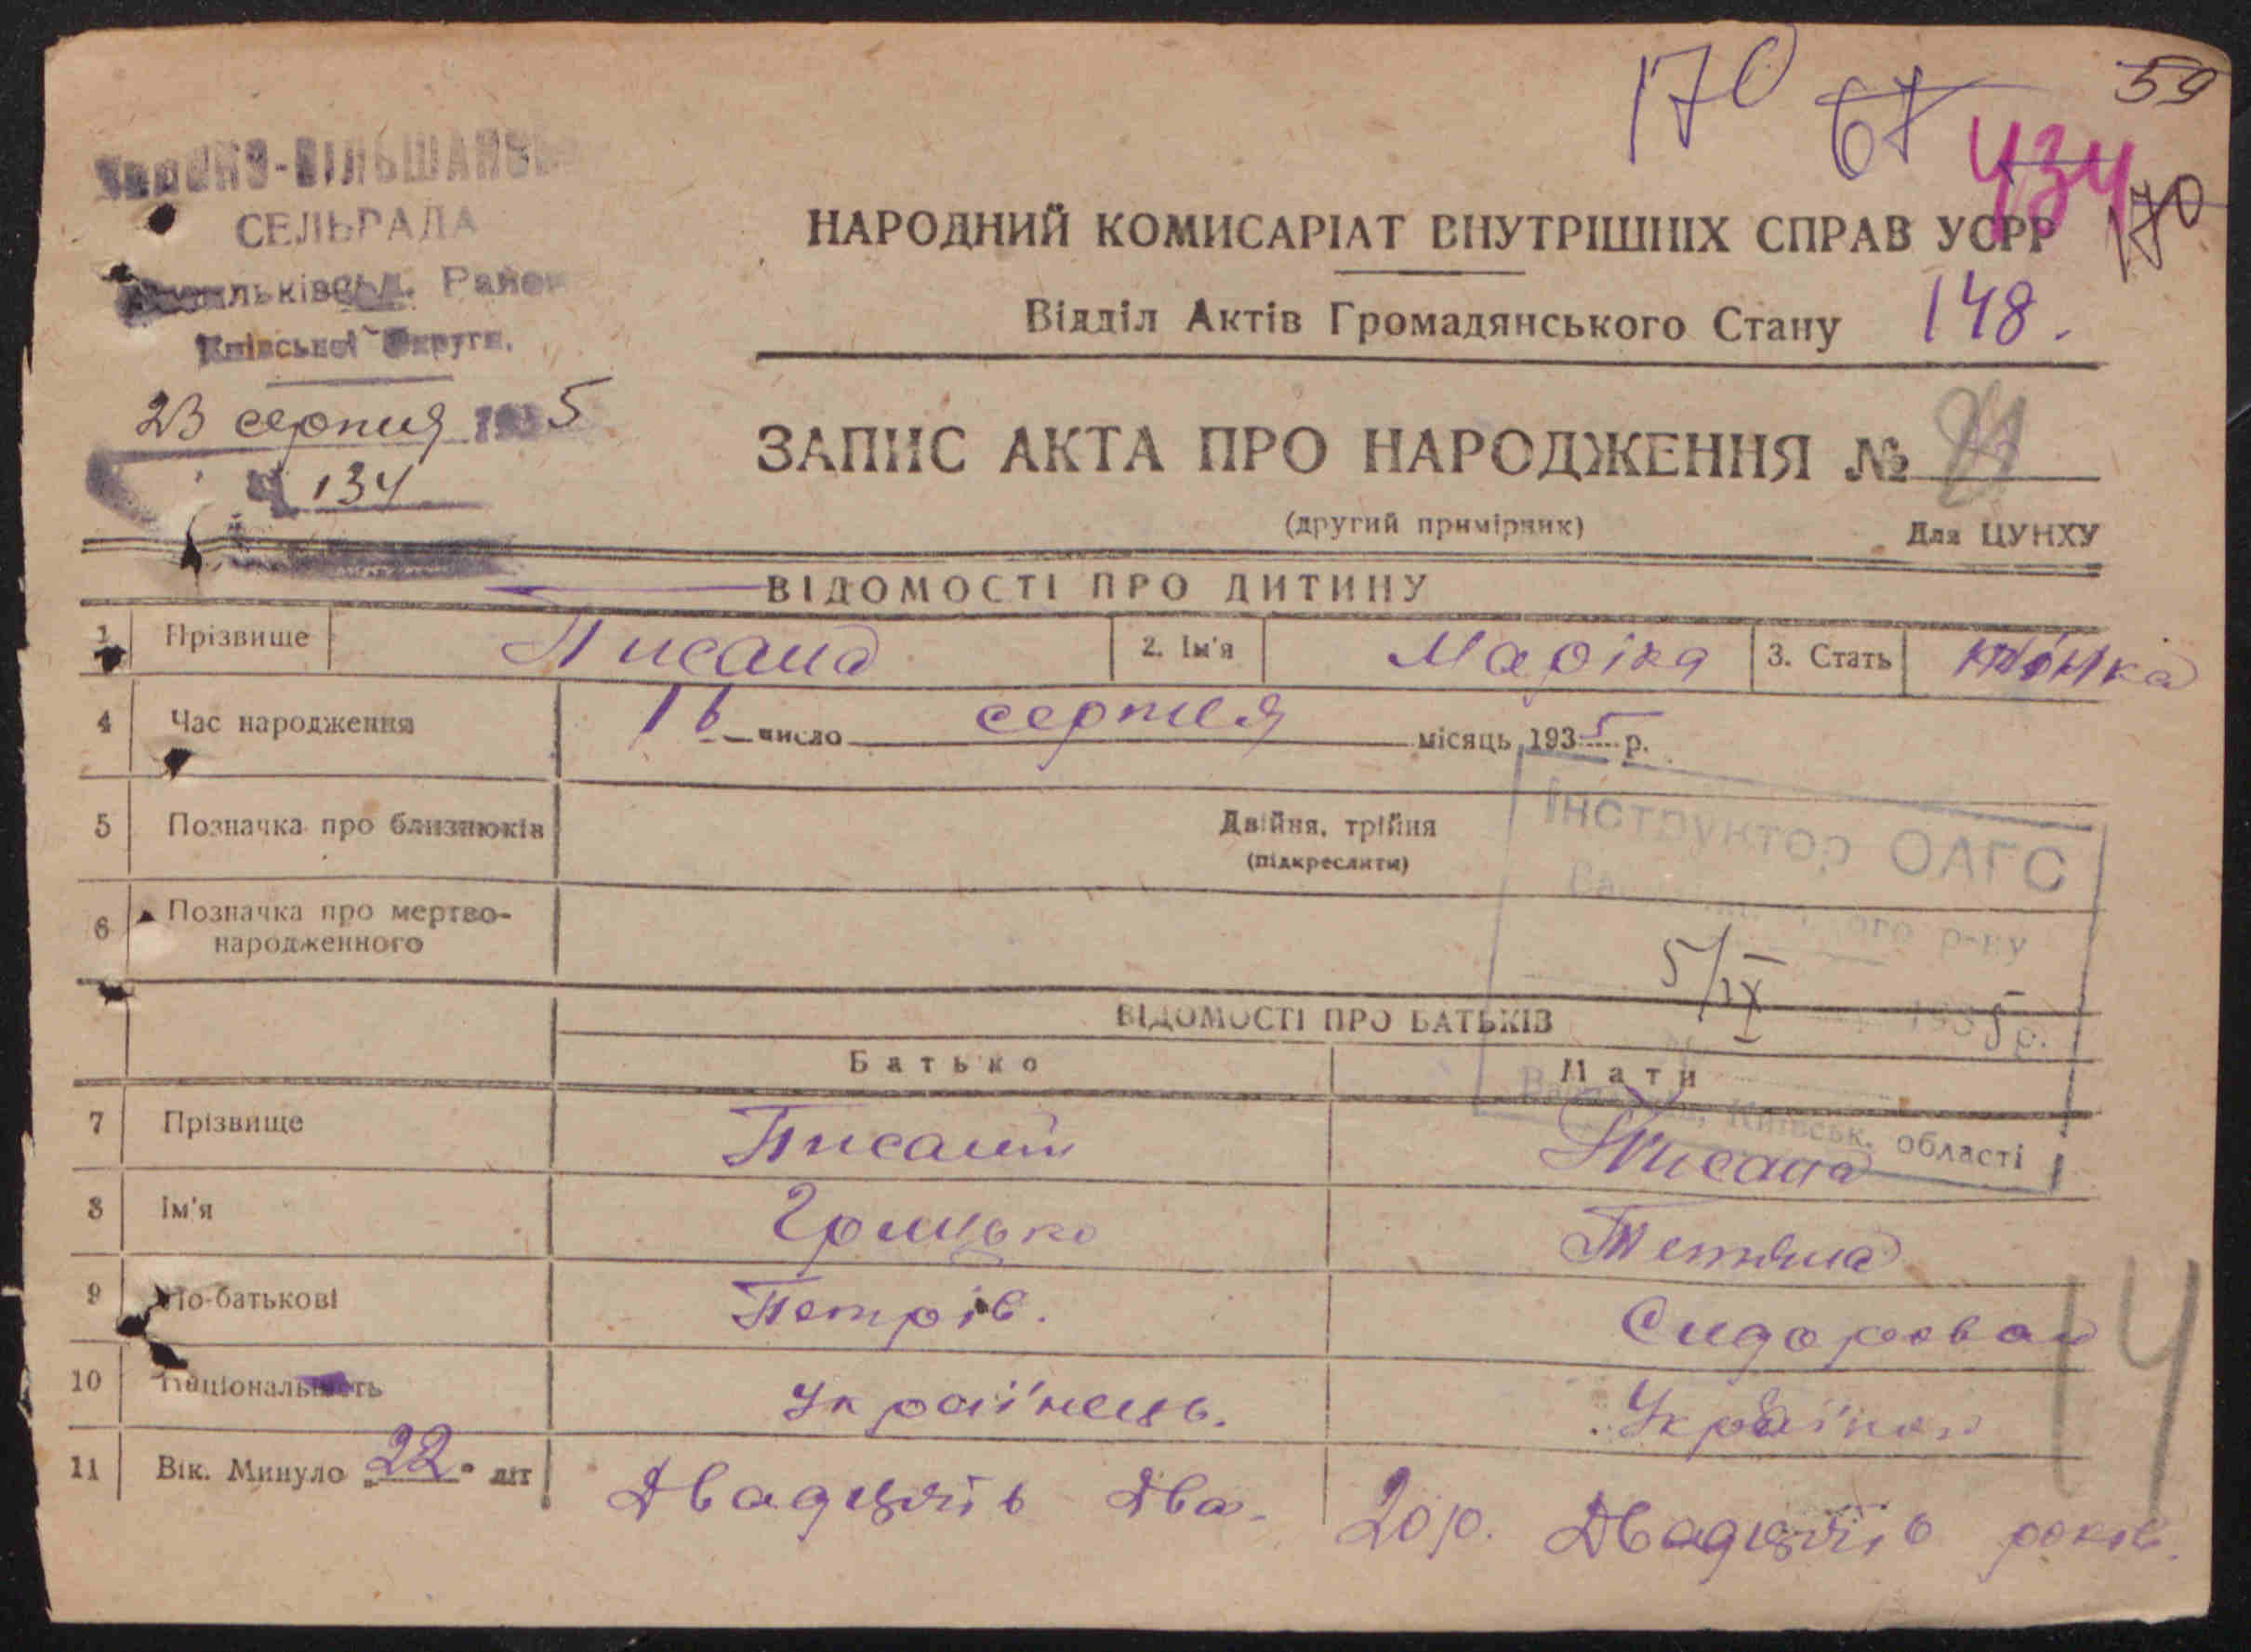 170 67 59
434 170
-ВІЛЬШАНСЬ
СЕЛЬРАДА
Район
Київської Округи.
23 серпня 1935
134
НАРОДНИЙ КОМИСАРІАТ ВНУТРІШНІХ СПРАВ УСРР
Відділ Актів Громадянського Стану 148.
ЗАПИС АКТА ПРО НАРОДЖЕННЯ №
(другий примірник) Для ЦУНХУ
ВІДОМОСТІ ПРО ДИТИНУ
1 Прізвище Писана 2. Ім'я Маріка 3. Стать жінка
4 Час народження 16 число серпня місяць 1935 р.
5 Позначка про близнюків Двійня, трійня
(підкреслити)
Інструктор ОАГС
6 Позначка про мертво-
народженного
р-ну
5/IX 1935 р.
ВІДОМОСТІ ПРО БАТЬКІВ
Батько Мати
Київськ. області
7 Прізвище Писаний Писана
8 Ім'я Грицько Тетяна
9 По-батькові Петрів. Сидорова
10 Національність Українець. Українка
11 Вік. Минуло 22 літ Двадцять два. 20 р. Двадцять років.
14